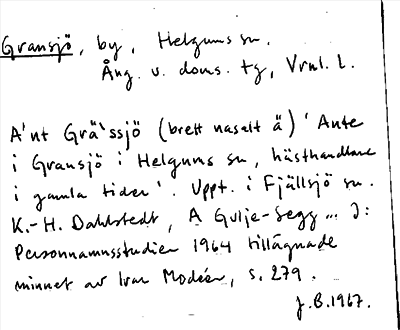 Gransjö, by, Helgums sn.
Ång. v. doms. tg, Vrnl. l.
A'nt Grä`ssjö (brett nasalt ä) 'Ante
i Gransjö i Helgums sn, hästhandlare
i gamla tider'. Uppt. i Fjällsjö sn.
K.-H. Dahlstedt, A Gulje-Segg ... I:
Personnamnsstudier 1964 tillägnade
minnet av Ivar Modéer, s. 279.
J.B. 1967.